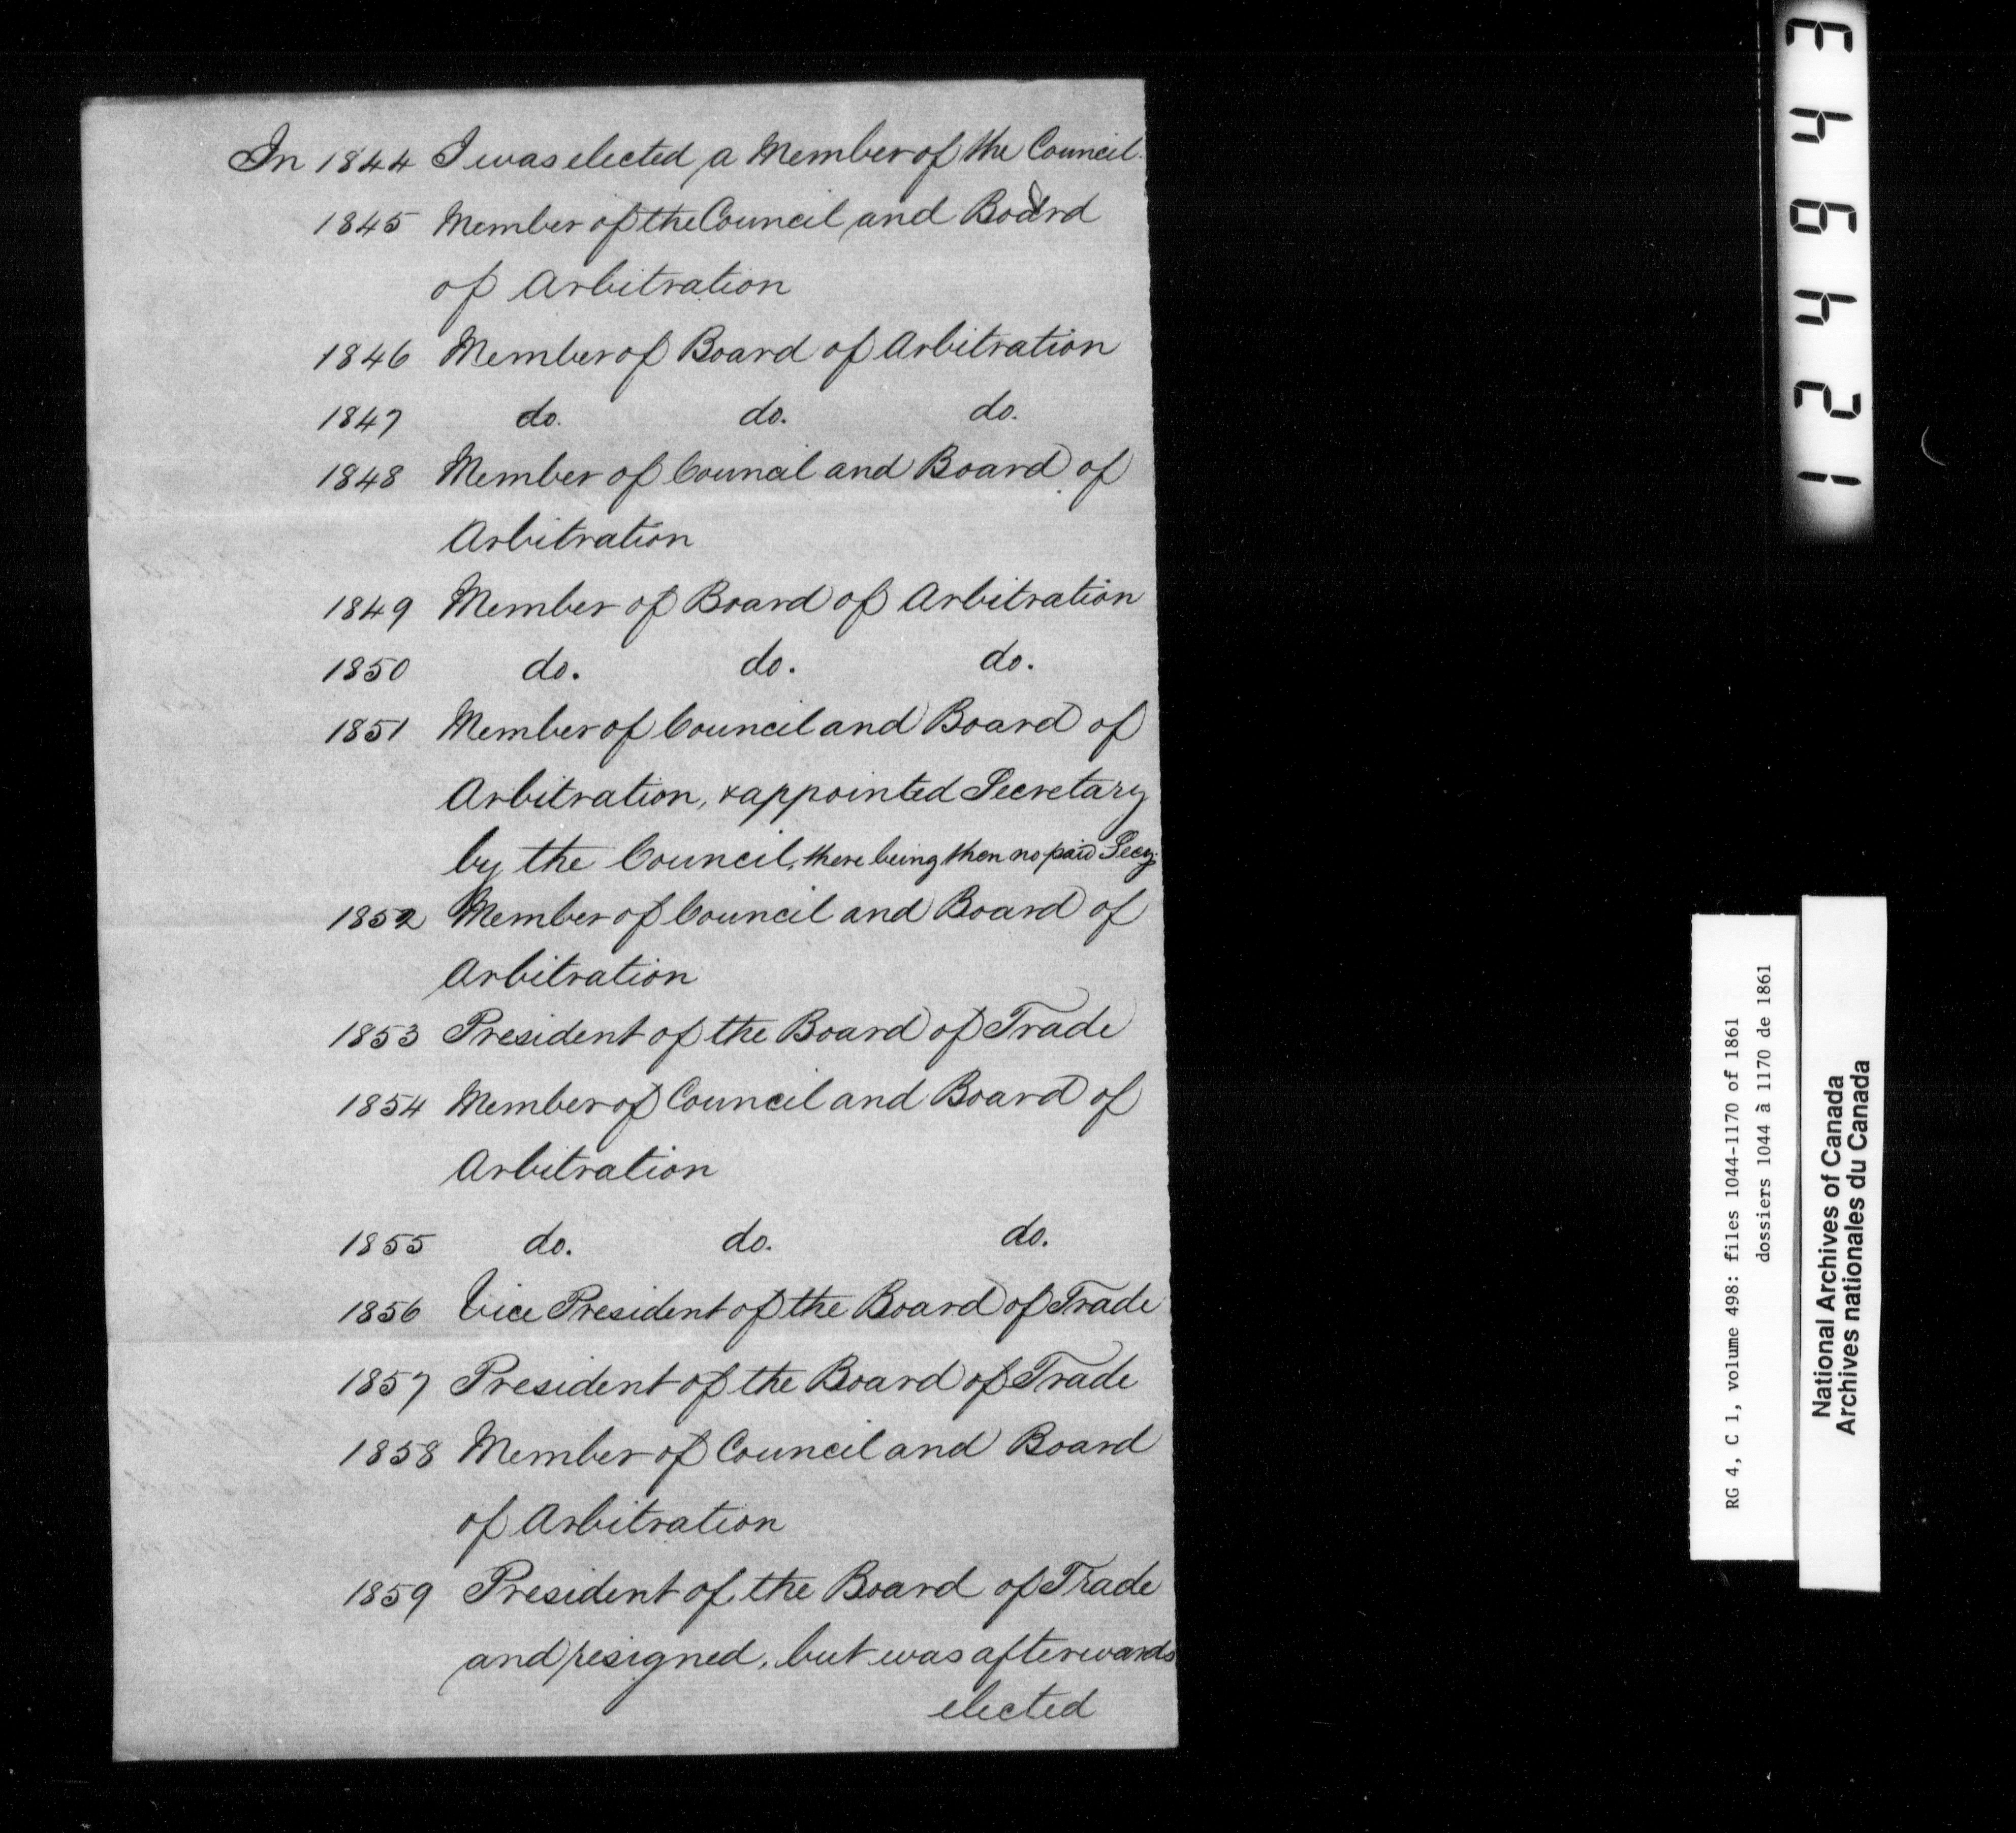 In 1844 I was elected a Member of the Council.
1845 Member of the Council and Board
of Arbitration
1846 Member of Board of Arbitration
1847 do. do. do.
1848 Member of Council and Board of
Arbitration
1849 Member of Board of Arbitration
1850 do. do. do.
1851 Member of Council and Board of
Arbitration, & appointed Secretary
by the Council, there being then no paid Secy.
1852 Member of Council and Board of
Arbitration
1853 President of the Board of Trade
1854 Member of Council and Board of
Arbitration
1855 do. do. do.
1856 Vice President of the Board of Trade
1857 President of the Board of Trade
1858 Member of Council and Board
of Arbitration
1859 President of the Board of Trade
and resigned, but was afterwards
elected
124943
RG 4, C 1, volume 498: files 1044-1170 of 1861
dossiers 1044 à 1170 de 1861
National Archives of Canada
Archives nationales du Canada